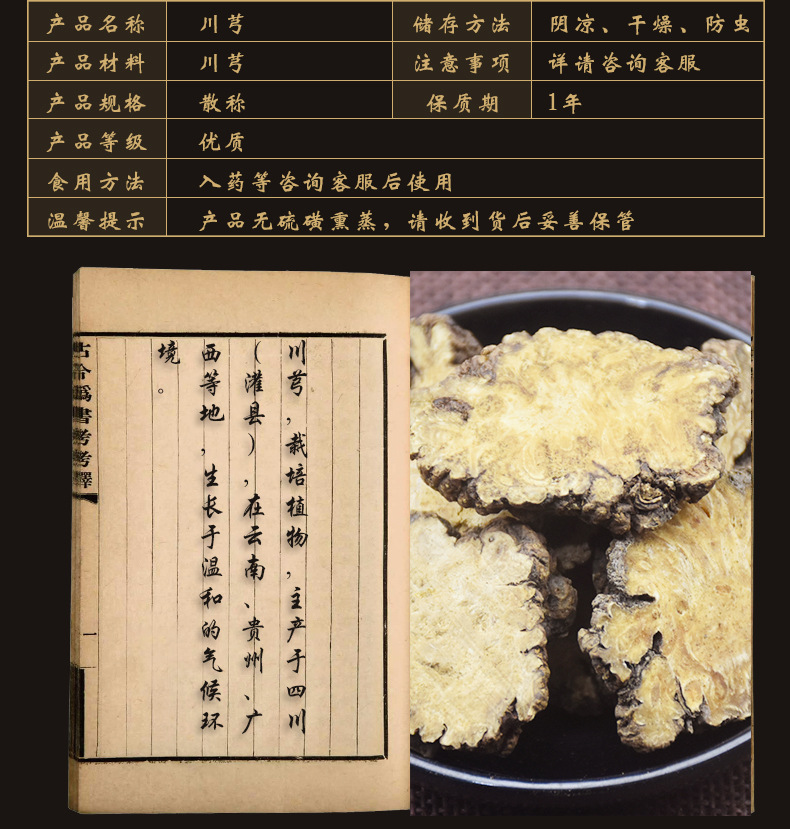 产品名称 川芎 储存方法 阴凉、干燥、防虫
产品材料 川芎 注意事项 详请咨询客服
产品规格 散称 保质期 1年
产品等级 优质
食用方法 入药等咨询客服后使用
温馨提示 产品无硫磺熏蒸，请收到货后妥善保管
川芎，栽培植物，主产于四川
（灌县），在云南、贵州、广
西等地，生长于温和的气候环
境。
古今爲書考考釋
一